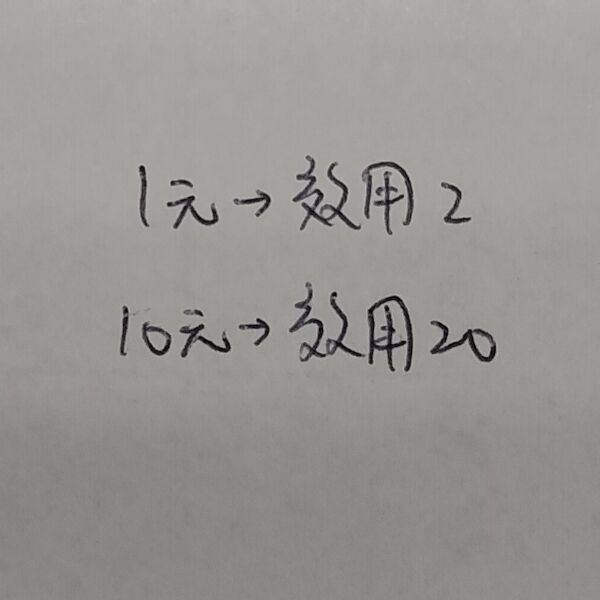 1元→效用2
10元→效用20